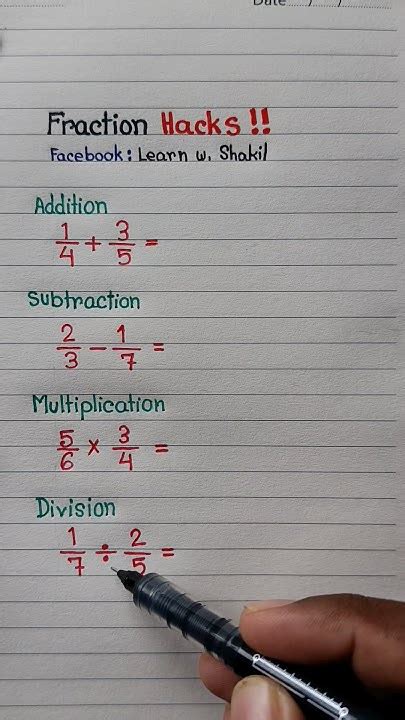 Date
Fraction Hacks !!
Facebook: Learn w. Shakil
Addition
1/4 + 3/5 =
Subtraction
2/3 - 1/7 =
Multiplication
5/6 × 3/4 =
Division
1/7 ÷ 2/5 =